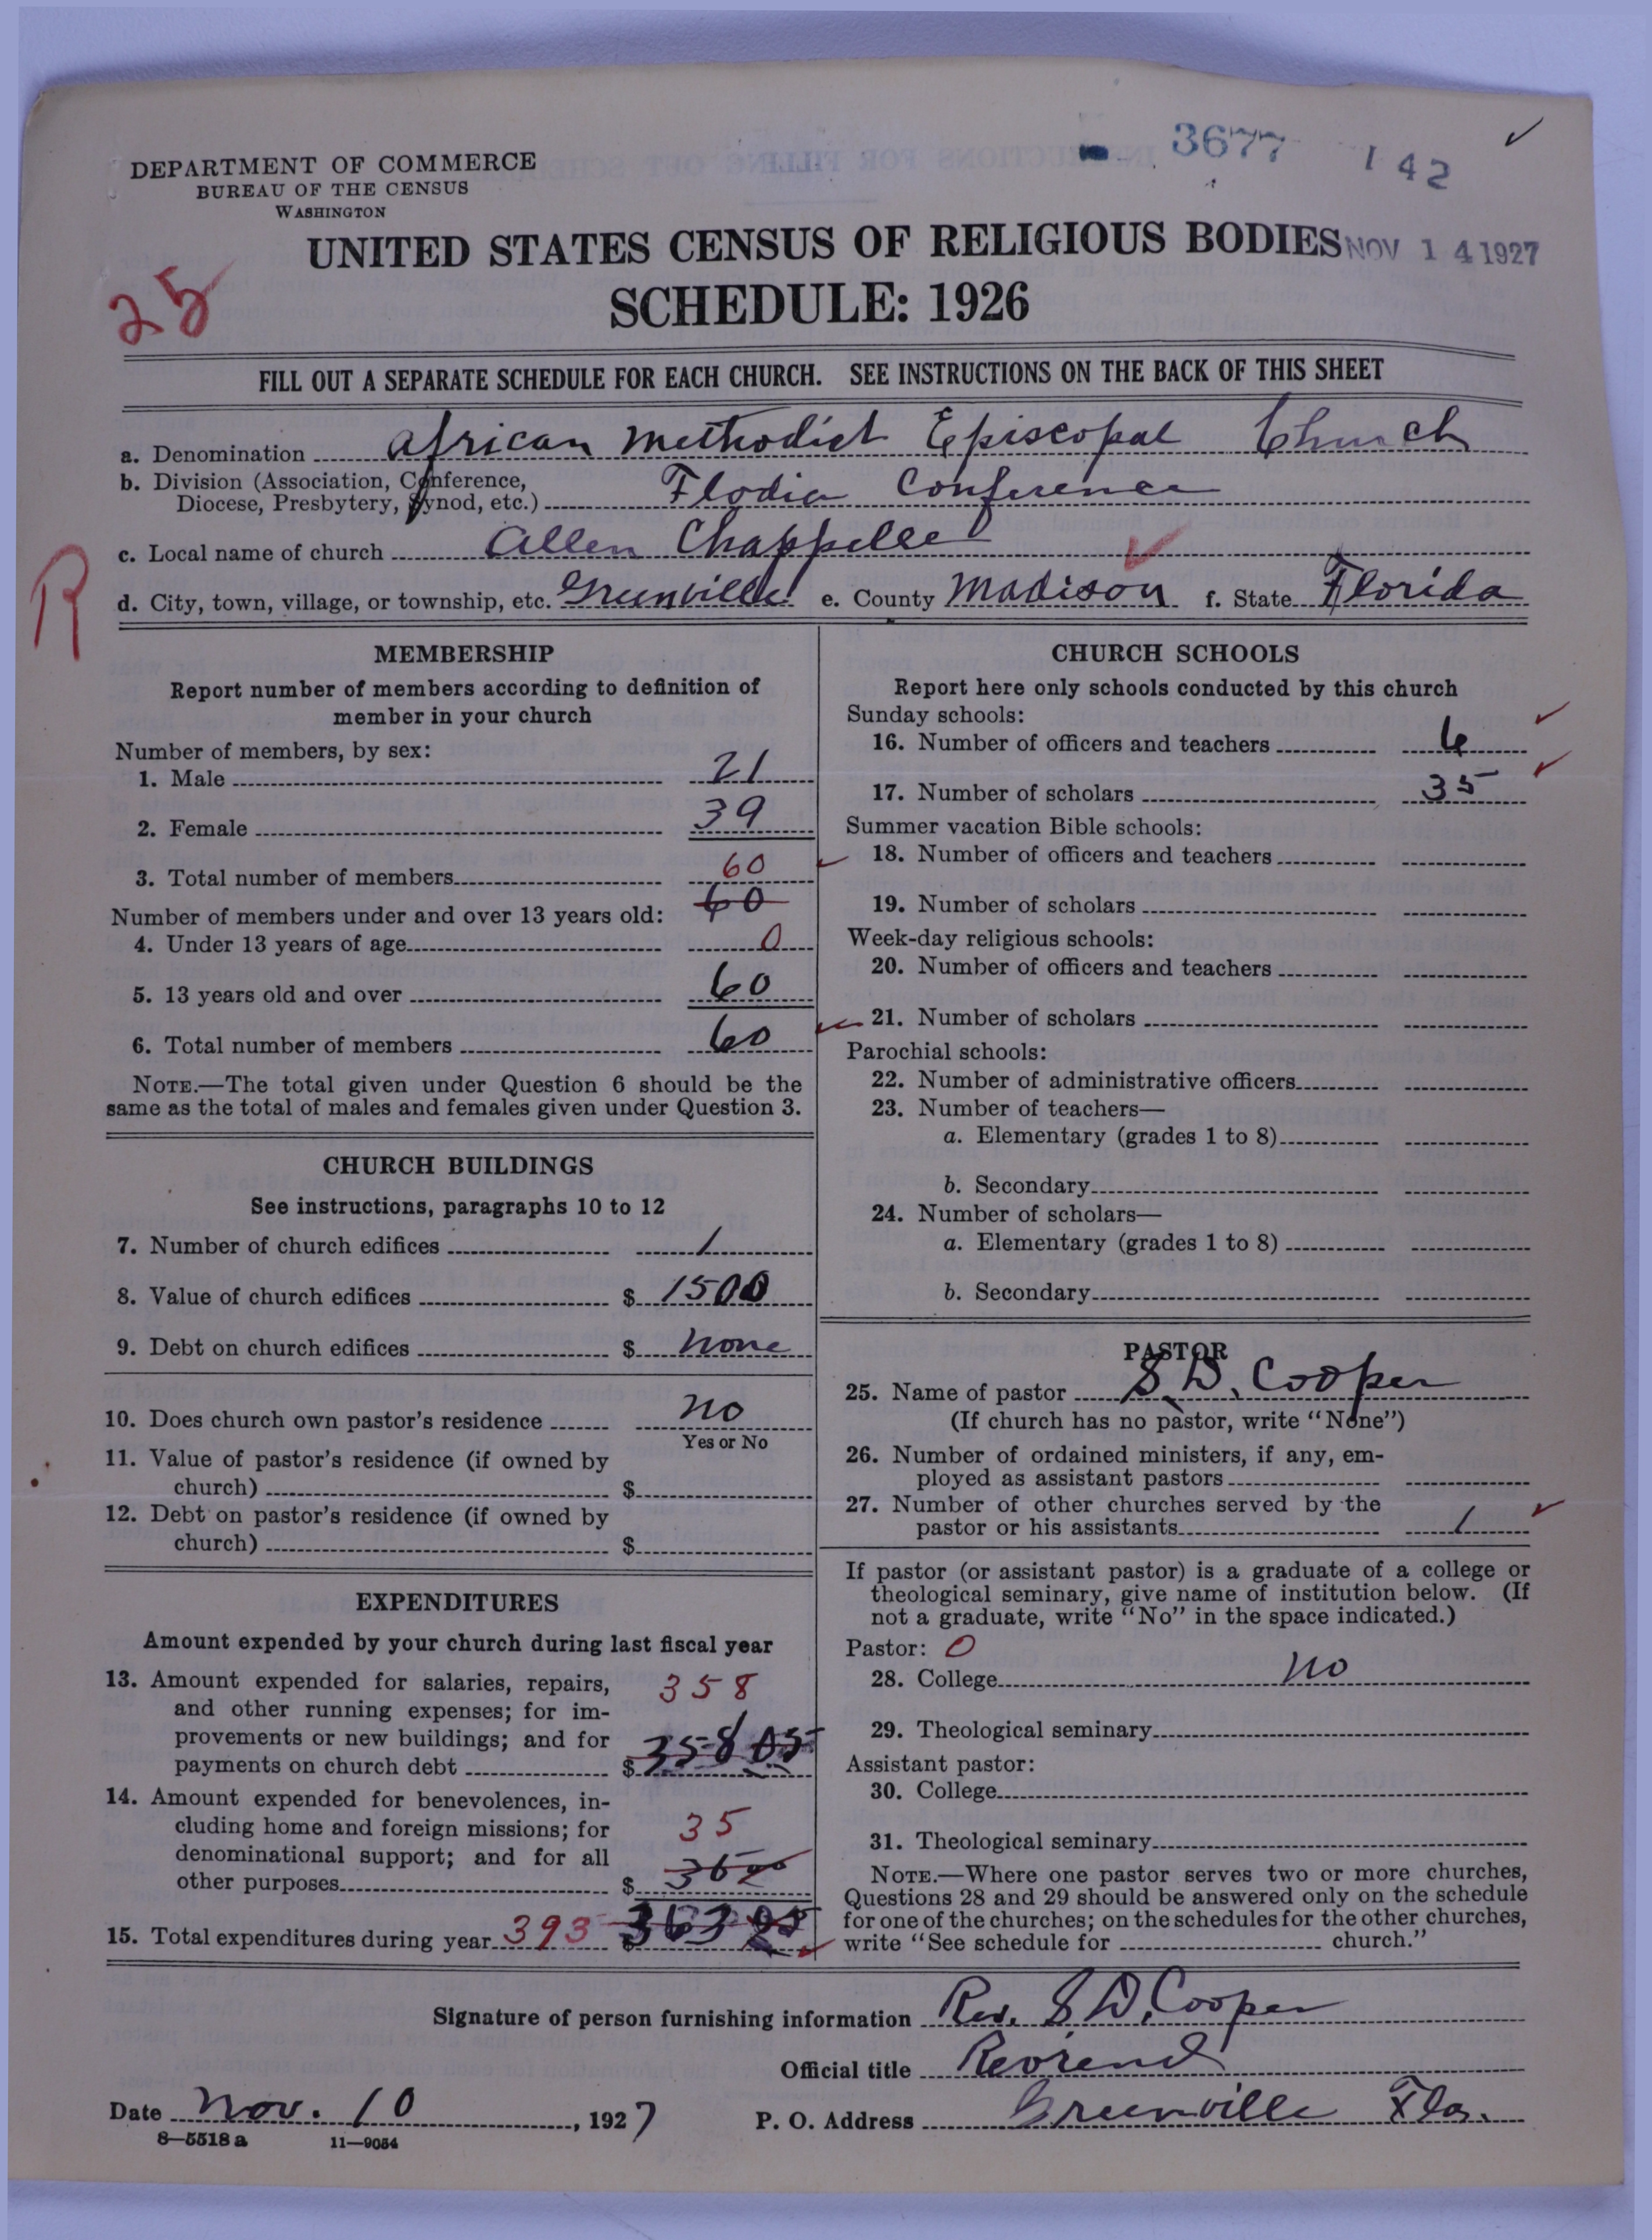 3677 142
DEPARTMENT OF COMMERCE
BUREAU OF THE CENSUS
WASHINGTON
UNITED STATES CENSUS OF RELIGIOUS BODIES
NOV 14 1927
25
SCHEDULE: 1926
FILL OUT A SEPARATE SCHEDULE FOR EACH CHURCH. SEE INSTRUCTIONS ON THE BACK OF THIS SHEET
a. Denomination African Methodist Episcopal Church
b. Division (Association, Conference,
Diocese, Presbytery, Synod, etc.) Flodia Conference
c. Local name of church Allen Chappelle
R
d. City, town, village, or township, etc. Greenville e. County Madison f. State Florida
MEMBERSHIP
Report number of members according to definition of
member in your church
Number of members, by sex:
1. Male 21
2. Female 39
3. Total number of members 60
60
Number of members under and over 13 years old:
4. Under 13 years of age 0
5. 13 years old and over 60
6. Total number of members 60
NOTE.—The total given under Question 6 should be the
same as the total of males and females given under Question 3.
CHURCH BUILDINGS
See instructions, paragraphs 10 to 12
7. Number of church edifices 1
8. Value of church edifices $ 1500
9. Debt on church edifices $ none
10. Does church own pastor's residence no
Yes or No
11. Value of pastor's residence (if owned by
church) $
12. Debt on pastor's residence (if owned by
church) $
EXPENDITURES
Amount expended by your church during last fiscal year
13. Amount expended for salaries, repairs, 358
and other running expenses; for im-
provements or new buildings; and for
payments on church debt $ 358 05
14. Amount expended for benevolences, in-
cluding home and foreign missions; for 35
denominational support; and for all
other purposes $
15. Total expenditures during year 393 $
CHURCH SCHOOLS
Report here only schools conducted by this church
Sunday schools:
16. Number of officers and teachers 6
17. Number of scholars 35
Summer vacation Bible schools:
18. Number of officers and teachers
19. Number of scholars
Week-day religious schools:
20. Number of officers and teachers
21. Number of scholars
Parochial schools:
22. Number of administrative officers
23. Number of teachers—
a. Elementary (grades 1 to 8)
b. Secondary
24. Number of scholars—
a. Elementary (grades 1 to 8)
b. Secondary
PASTOR
25. Name of pastor S. D. Cooper
(If church has no pastor, write "None")
26. Number of ordained ministers, if any, em-
ployed as assistant pastors
27. Number of other churches served by the
pastor or his assistants 1
If pastor (or assistant pastor) is a graduate of a college or
theological seminary, give name of institution below. (If
not a graduate, write "No" in the space indicated.)
Pastor: 0
28. College no
29. Theological seminary
Assistant pastor:
30. College
31. Theological seminary
NOTE.—Where one pastor serves two or more churches,
Questions 28 and 29 should be answered only on the schedule
for one of the churches; on the schedules for the other churches,
write "See schedule for church."
Signature of person furnishing information Rev. S. D. Cooper
Official title Revrend
Date Nov. 10, 1927 P. O. Address Greenville Fla.
8—5518 a 11—9054